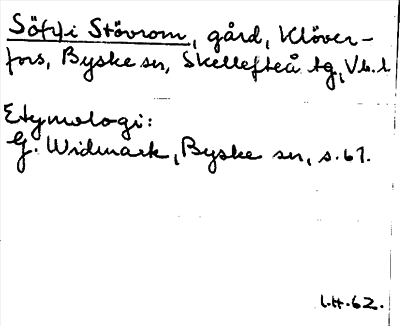 Sö(r) i Stövrom, gård, Klöver-
fors, Byske sn, Skellefteå tg, Vb. l.
Etymologi:
G. Widmark, Byske sn, s. 61.
L.H. 62.